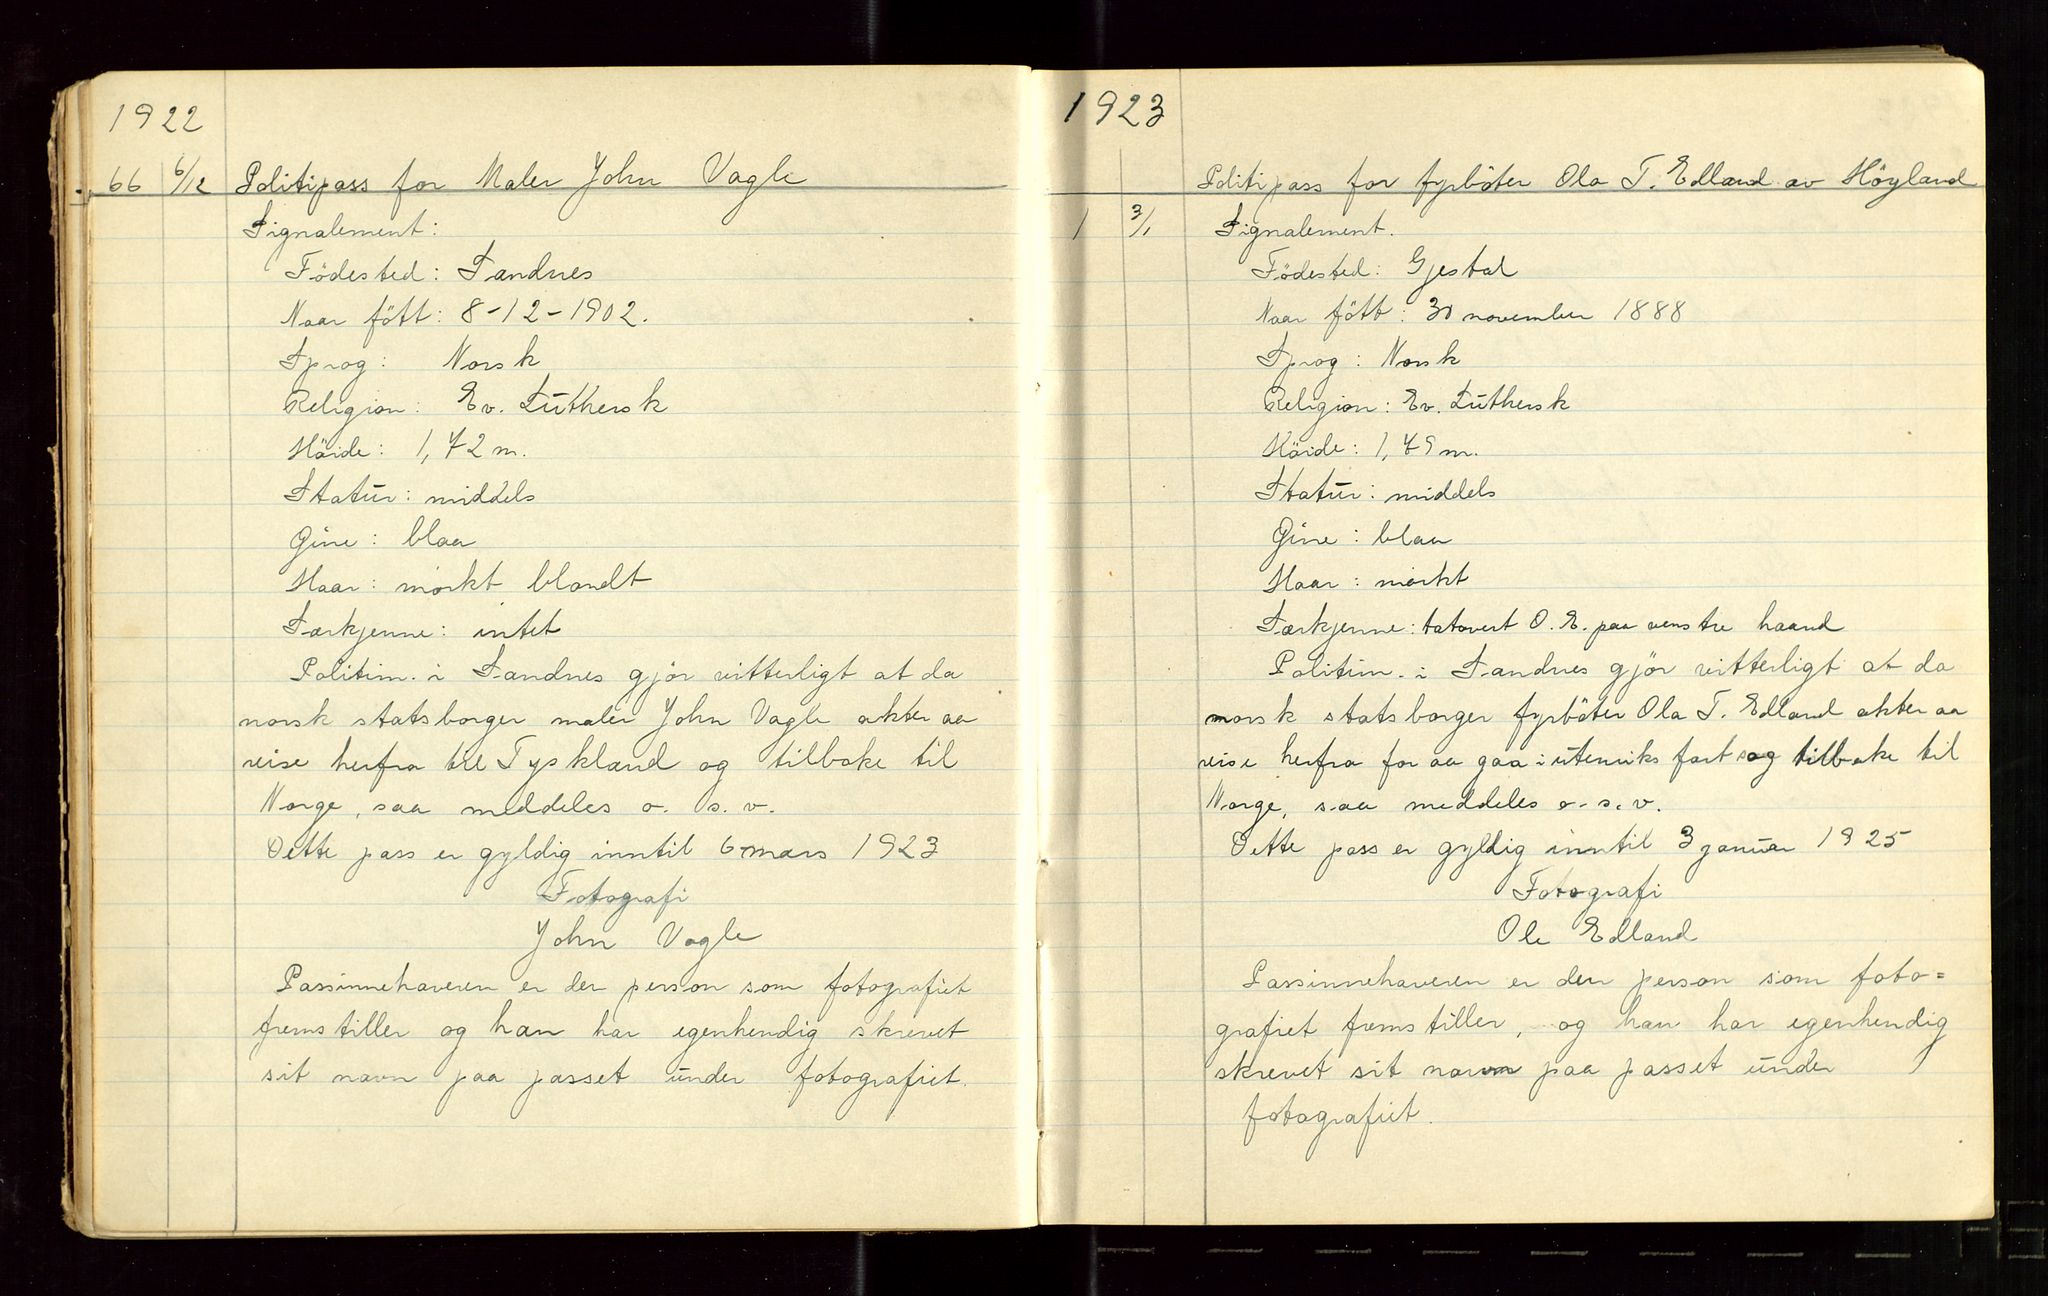 1922
66 6/12 Politipass for Maler John Vagle
Signalement:
Födested: Sandnes
Naar fött: 8-12-1902.
Sprog: Norsk
Religion: Ev. Luthersk
Höide: 1,72 m.
Statur: middels
Öine: blaa
Haar: mörkt blondt
Særkjenne: intet
Politim. i Sandnes gjör vitterligt at da
norsk statsborger maler John Vagle akter aa
reise herfra til Tyskland og tilbake til
Norge, saa meddeles o. s. v.
Dette pass er gyldig inntil 6 mars 1923
Fotografi
John Vagle
Passinnehaveren er den person som fotografiet
fremstiller og han har egenhendig skrevet
sit navn paa passet under fotografiet.
1923
Politipass for fyrböter Ola T. Edland av Höyland
1 3/1 Signalement.
Födested: Gjestal
Naar fött: 30 november 1888
Sprog: Norsk
Religion: Ev. Luthersk
Höide: 1,79 m.
Statur: middels
Öine: blaa
Haar: mörkt
Særkjenne: tatovert O. E. paa venstre haand
Politim. i Sandnes gjör vitterligt at da
norsk statsborger fyrböter Ola T. Edland akter aa
reise herfra for aa gaa i utenriks fart og tilbake til
Norge, saa meddeles o. s. v.
Dette pass er gyldig inntil 3 januar 1925
Fotografi
Ole Edland
Passinnehaveren er den person som foto=
grafiet fremstiller, og han har egenhendig
skrevet sit navn paa passet under
fotografiet.